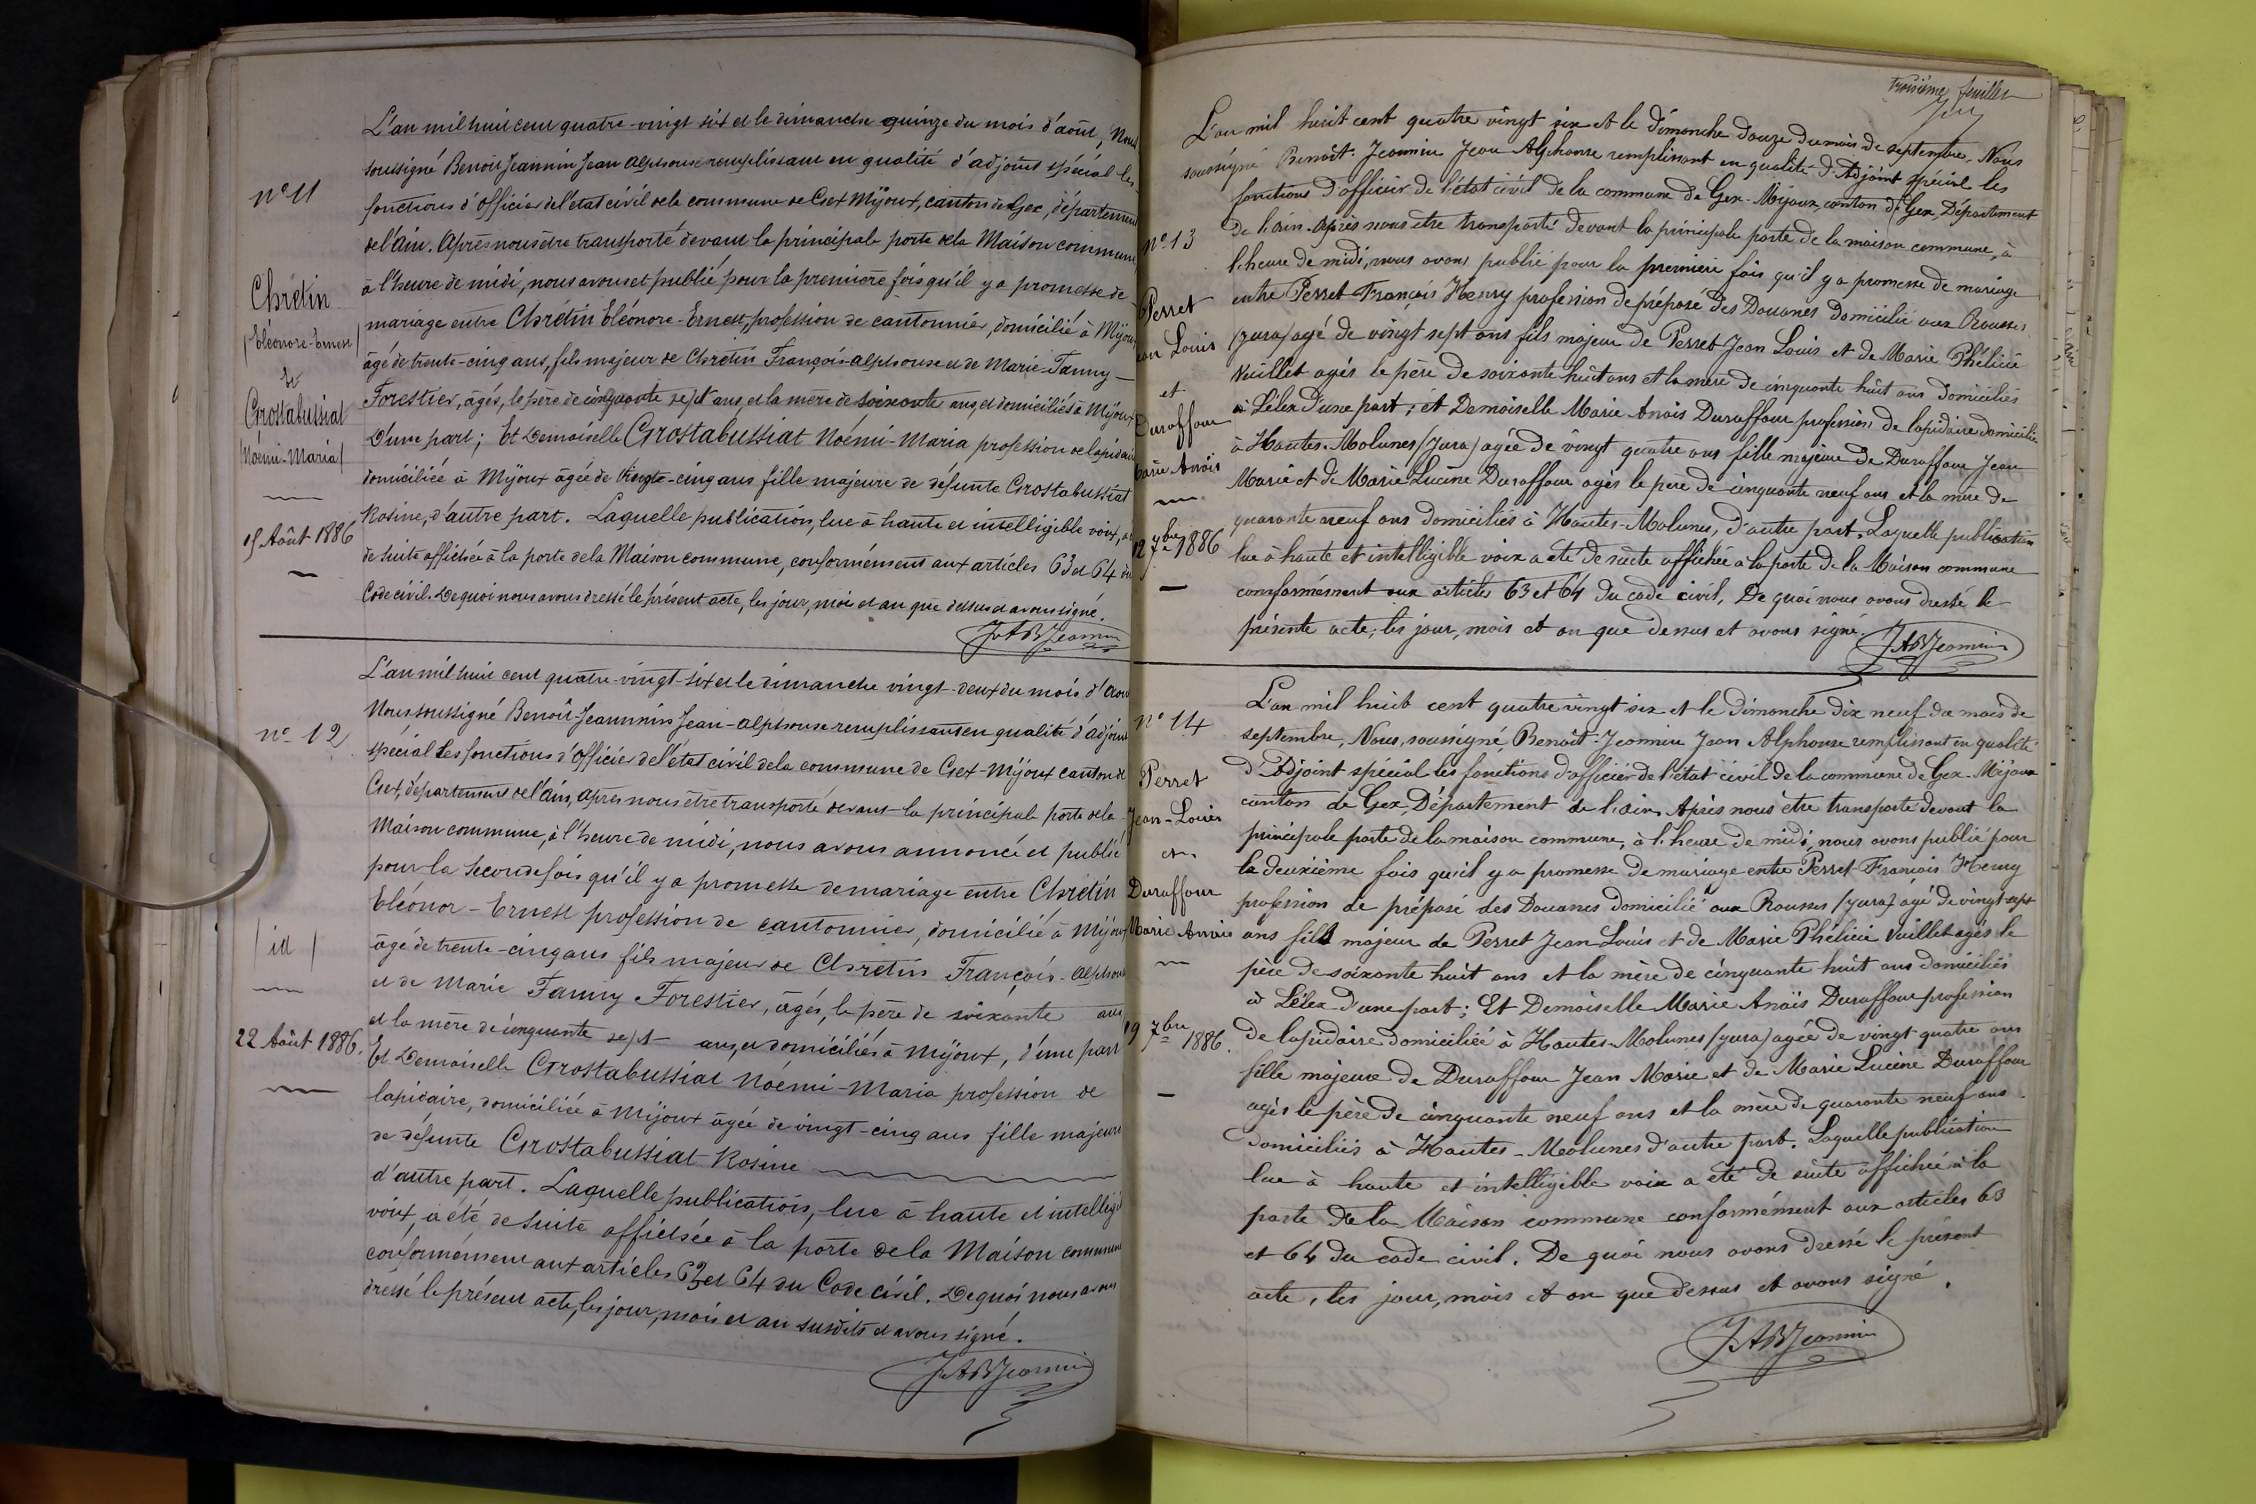 nº 11
Chrétin
(Eléonore-Ernest)
et
Grostabussiat
(Noémi-Maria)
15 Août 1886
L'an mil huit cent quatre-vingt six et le dimanche quinze du mois d'août, Nous
soussigné Benoit Jeannin Jean Alphonse remplissant en qualité d'adjoint spécial les
fonctions d'officier de l'état civil de la commune de Gex Mijoux, canton de Gex, département
de l'Ain. Après nous être transporté devant la principale porte de la Maison commune,
à l'heure de midi, nous avons et publié pour la première fois qu'il y a promesse de
mariage entre Chrétin Eléonore-Ernest, profession de cantonnier, domicilié à Mijoux
âgé de trente-cinq ans, fils majeur de Chrétin François-Alphonse et de Marie-Fanny
Forestier, âgés, le père de cinquante sept ans, et la mère de soixante ans, et domiciliés à Mijoux
d'une part; Et Demoiselle Grostabussiat Noémi-Maria profession de lapidaire
domiciliée à Mijoux âgée de vingt-cinq ans fille majeure de défunte Grostabussiat
Rosine, d'autre part. Laquelle publication, lue à haute et intelligible voix, a
de suite affichée à la porte de la Maison commune, conformément aux articles 63 et 64 du
Code civil. De quoi nous avons dressé le présent acte, les jour, mois et an que dessus et avons signé.
JABJeannin
nº 12
(id)
22 Août 1886.
L'an mil huit cent quatre-vingt-six et le dimanche vingt-deux du mois d'août
Nous soussigné Benoit-Jeannin Jean-Alphonse remplissant en qualité d'adjoint
spécial les fonctions d'officier de l'état civil de la commune de Gex-Mijoux canton de
Gex, département de l'Ain, après nous être transporté devant la principale porte de la
Maison commune, à l'heure de midi, nous avons annoncé et publié
pour la seconde fois qu'il y a promesse de mariage entre Chrétin
Eléonor-Ernest profession de cantonnier, domicilié à Mijoux
âgé de trente-cinq ans fils majeur de Chrétin François-Alphonse
et de Marie Fanny Forestier, âgés, le père de soixante ans
et la mère de cinquante sept ans, et domiciliés à Mijoux, d'une part
Et Demoiselle Grostabussiat Noémi-Maria profession de
lapidaire, domiciliée à Mijoux âgée de vingt-cinq ans fille majeure
de défunte Grostabussiat Rosine
d'autre part. Laquelle publication, lue à haute et intelligible
voix, a été de suite affichée à la porte de la Maison commune
conformément aux articles 63 et 64 du Code civil. De quoi nous avons
dressé le présent acte, les jour, mois et an susdits et avons signé.
JABJeannin
Troisième feuillet
nº 13
Perret
Jean Louis
et
Duraffour
Marie Anaïs
12 7bre 1886
L'an mil huit cent quatre vingt six et le dimanche douze du mois de septembre. Nous
soussigné Benoit-Jeannin Jean Alphonse remplissant en qualité d'Adjoint spécial les
fonctions d'officier de l'état civil de la commune de Gex-Mijoux, canton de Gex, Département
de l'ain. après nous être transporté devant la principale porte de la maison commune, à
l'heure de midi, nous avons publié pour la première fois qu'il y a promesse de mariage
entre Perret François Henry profession de préposé des Douanes domicilié aux Rousses
(jura) agé de vingt sept ans fils majeur de Perret Jean Louis et de Marie Phélicie
Vuillet agés le père de soixante huit ans et la mère de cinquante huit ans domiciliés
à Lélex d'une part; et Demoiselle Marie Anaïs Duraffour profession de lapidaire domiciliée
à Hautes-Molunes (Jura) agée de vingt quatre ans fille majeure de Duraffour Jean
Marie et de Marie Lucine Duraffour agés le père de cinquante neuf ans et la mère de
quarante neuf ans domiciliés à Hautes-Molunes, d'autre part. Laquelle publication
lue à haute et intelligible voix a été de suite affichée à la porte de la Maison commune
conformément aux articles 63 et 64 du code civil, De quoi nous avons dressé le
présente acte, les jour, mois et an que dessus et avons signé.
JABJeannin
nº 14
Perret
Jean-Louis
et
Duraffour
Marie Anaïs
19 7bre 1886.
L'an mil huit cent quatre vingt six et le dimanche dix neuf du mois de
septembre, Nous, soussigné Benoit-Jeannin Jean Alphonse remplissant en qualité
d'Adjoint spécial les fonctions d'officier de l'état civil de la commune de Gex-Mijoux
canton de Gex, Département de l'ain. Après nous être transporté devant la
principale porte de la maison commune, à l'heure de midi, nous avons publié pour
la deuxième fois qu'il y a promesse de mariage entre Perret François Henry
profession de préposé des Douanes domicilié aux Rousses (jura) agé de vingt-sept
ans fils majeur de Perret Jean Louis et de Marie Phélicie Vuillet agés le
père de soixante huit ans et la mère de cinquante huit ans domiciliés
à Lélex d'une part; Et Demoiselle Marie Anaïs Duraffour profession
de lapidaire domiciliée à Hautes-Molunes (jura) agée de vingt quatre ans
fille majeure de Duraffour Jean Marie et de Marie Lucine Duraffour
agés le père de cinquante neuf ans et la mère de quarante neuf ans.
domiciliés à Hautes-Molunes d'autre part. Laquelle publication
lue à haute et intelligible voix a été de suite affichée à la
porte de la Maison commune conformément aux articles 63
et 64 du code civil. De quoi nous avons dressé le présent
acte, les jour, mois et an que dessus et avons signé.
JABJeannin